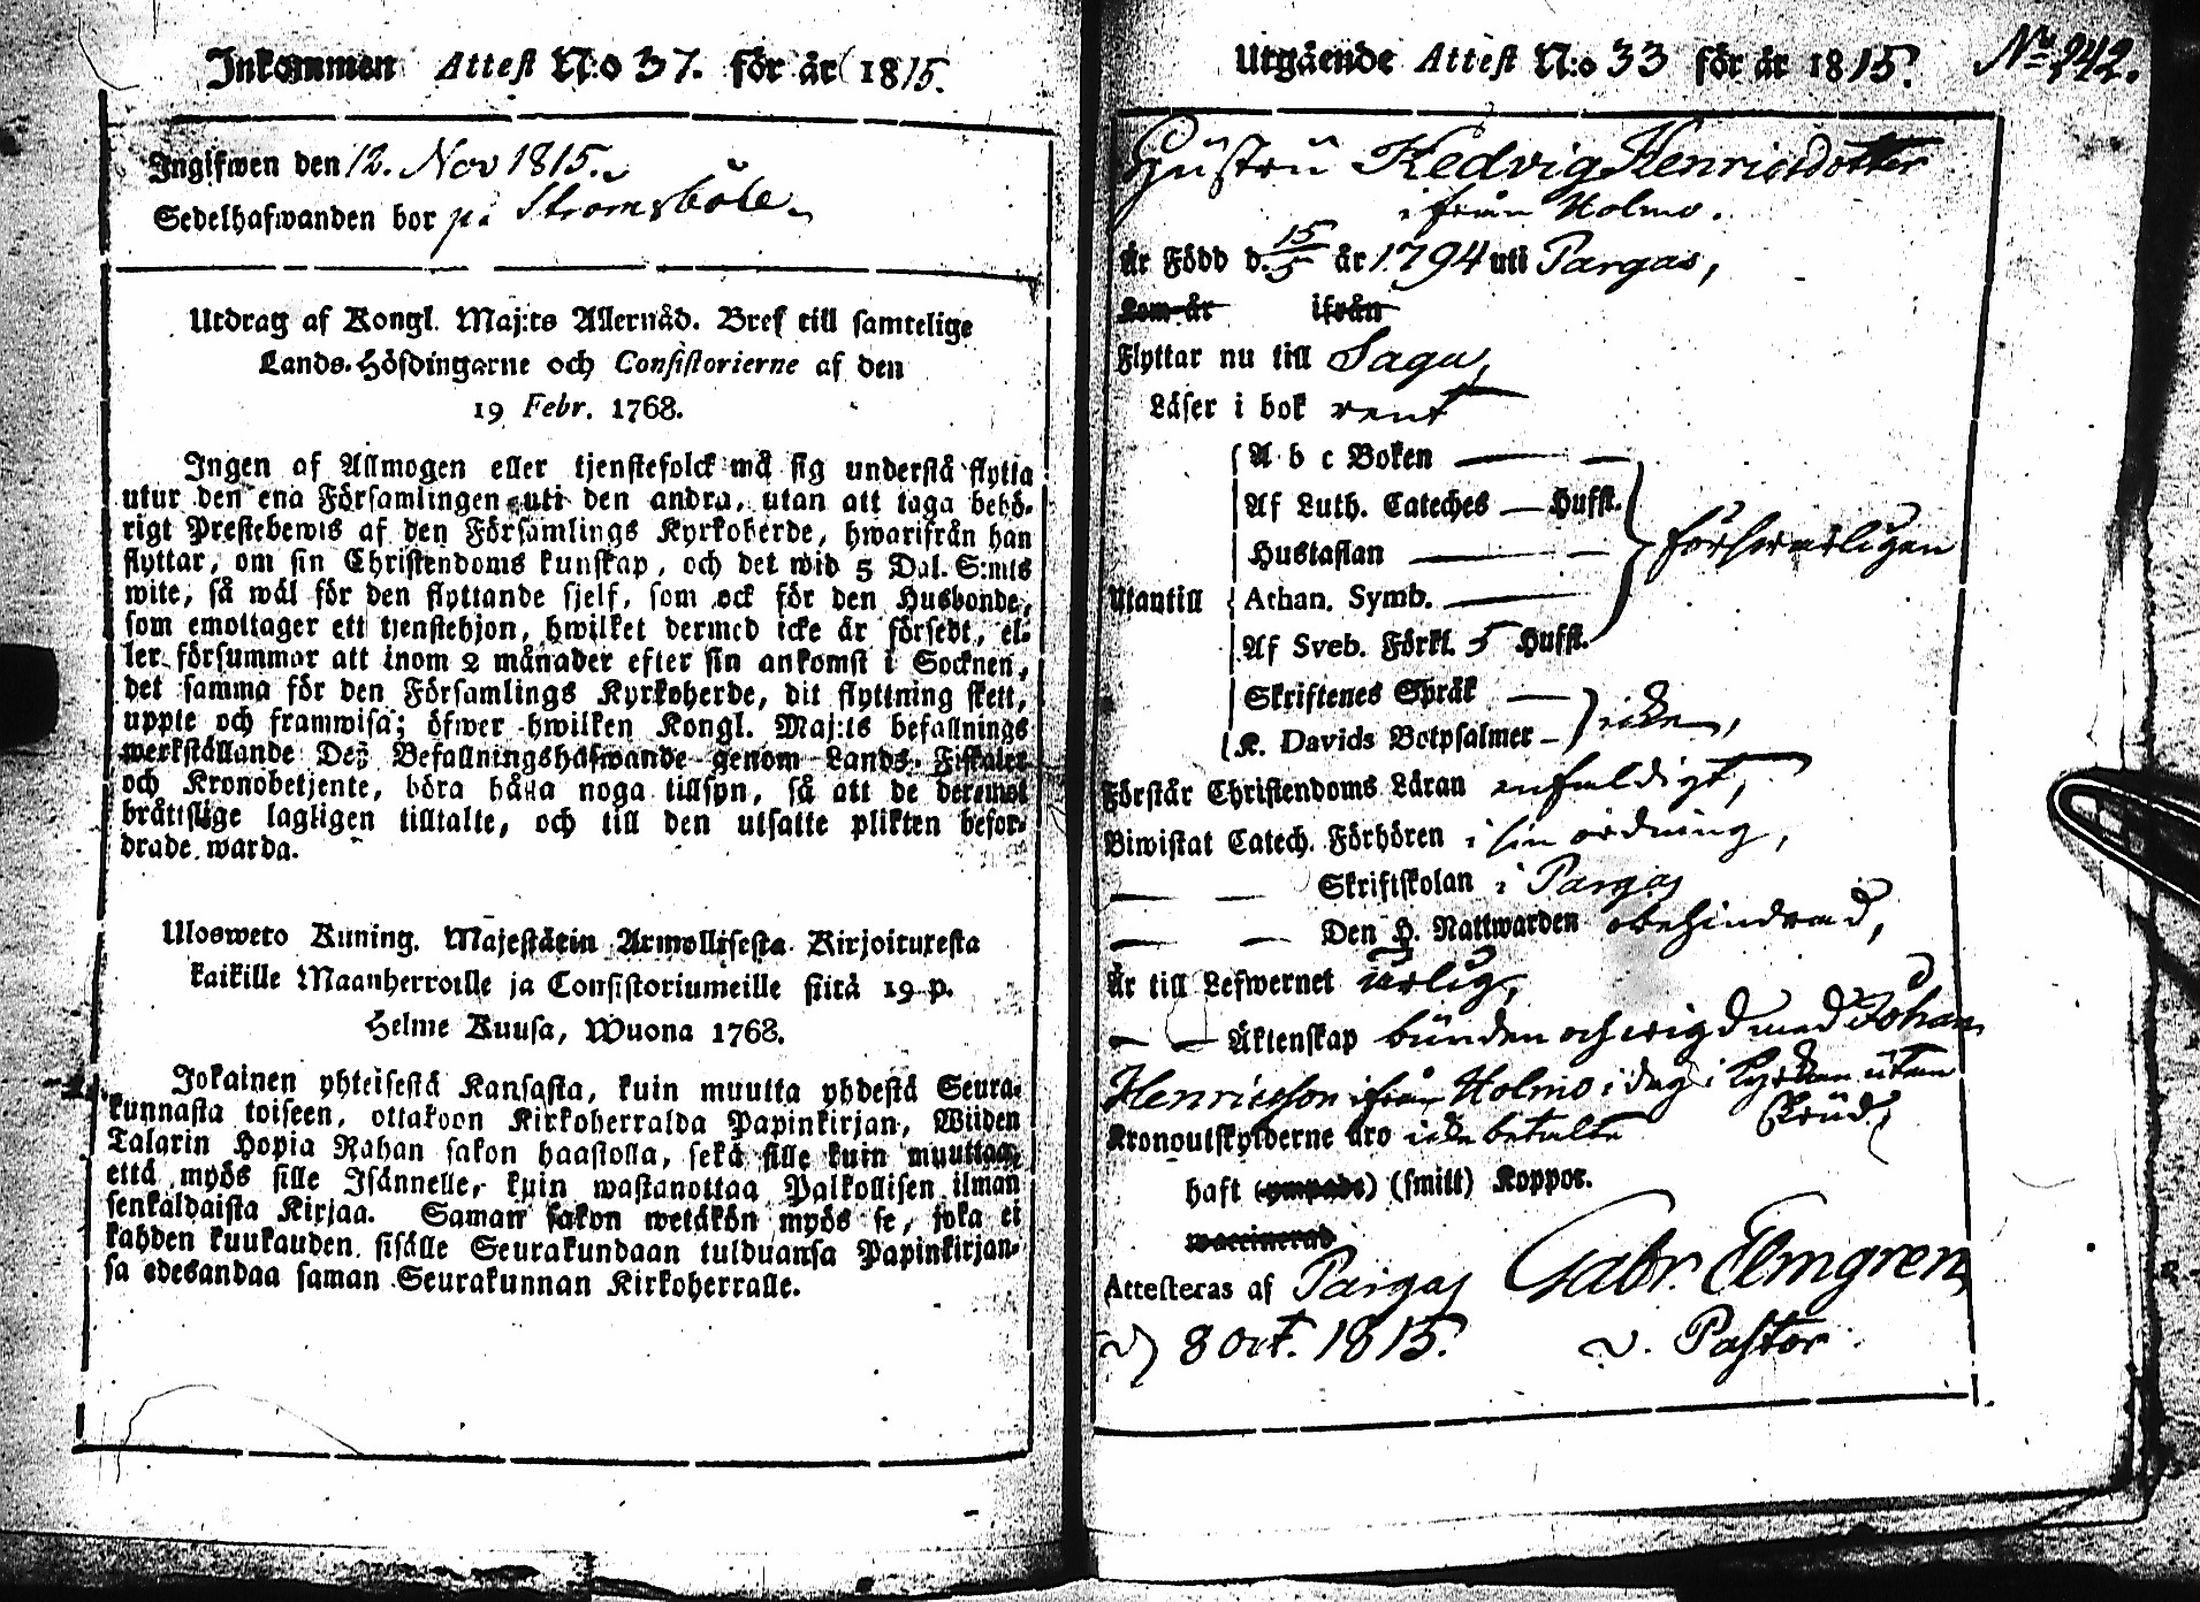 Inkommen Attest N:o 37. för år 1815.
Ingifwen den 12. Nov 1815.
Sedelhafwanden bor på Strömsböle.
Utdrag af Kongl. Maj:ts Allernåd. Bref till samtelige
Lands-Höfdingarne och Consistorierne af den
19 Febr. 1768.
Ingen af Allmogen eller tjenstefolck må sig understå flytta
utur den ena Församlingen uti den andra, utan att taga behö-
rigt Prestebewis af den Församlings Kyrkoherde, hwarifrån han
flyttar, om sin Christendoms kunskap, och det wid 5 Dal. S:mts
wite, så wäl för den flyttande sjelf, som ock för den Husbonde,
som emottager ett tjenstehjon, hwilket dermed icke är försedt, el-
ler försummar att inom 2 månader efter sin ankomst i Socknen,
det samma för den Församlings Kyrkoherde, dit flyttning skett,
uppte och framwisa; öfwer hwilken Kongl. Maj:ts befallnings
werkställande Deß Befallningshafwande genom Lands-Fiskaler
och Kronobetjente, böra hålla noga tillsyn, så att de deremot
bråttslige lagligen tilltalte, och till den utsatte plikten befor-
drade warda.
Ulosweto Kuning. Majestätin Armollisesta Kirjoituxesta
kaikille Maanherroille ja Consistoriumeille siitä 19 p.
Helme Kuusa, Wuona 1768.
Jokainen yhteisestä Kansasta, kuin muutta yhdestä Seura-
kunnasta toiseen, ottakoon Kirkoherralda Papinkirjan, Wiiden
Talarin Hopia Rahan sakon haastolla, sekä sille kuin muuttaa,
että myös sille Isännelle, kuin wastanottaa Palkollisen ilman
senkaldaista Kirjaa. Saman sakon wetäkön myös se, joka ei
kahden kuukauden sisälle Seurakundaan tulduansa Papinkirjan-
sa edesandaa saman Seurakunnan Kirkoherralle.
Utgående Attest N:o 33 för år 1815. No 242.
Hustru Hedvig Henricsdotter
ifrån Holmo.
Är Född d. 15/5 år 1794 uti Pargas,
Kom år ifrån
Flyttar nu till Sagu,
Läser i bok rent
A b c Boken
Af Luth. Cateches — Hufst.
Hustaflan — försvarligen
Utantill Athan. Symb.
Af Sveb. Förkl. 5 Hufst.
Skriftenes Språk
K. Davids Botpsalmer – icke,
Förstår Christendoms Läran enfaldigt,
Biwistat Catech. Förhören i sin ordning,
— — Skriftskolan i Pargas
— — Den H. Nattwarden obehindrad,
Är till Lefwernet ärlig,
— — Äktenskap bunden och wigd med Johan
Henricsson ifrån Holmo i dag i Kyrkan utan
Skrud.
Kronoutskylderne äro icke betalte
haft (ympade) (smitt) Koppor.
waccinerad
Attesteras af Pargas Gabr. Elmgren
d 8 Oct. 1815. v. Pastor